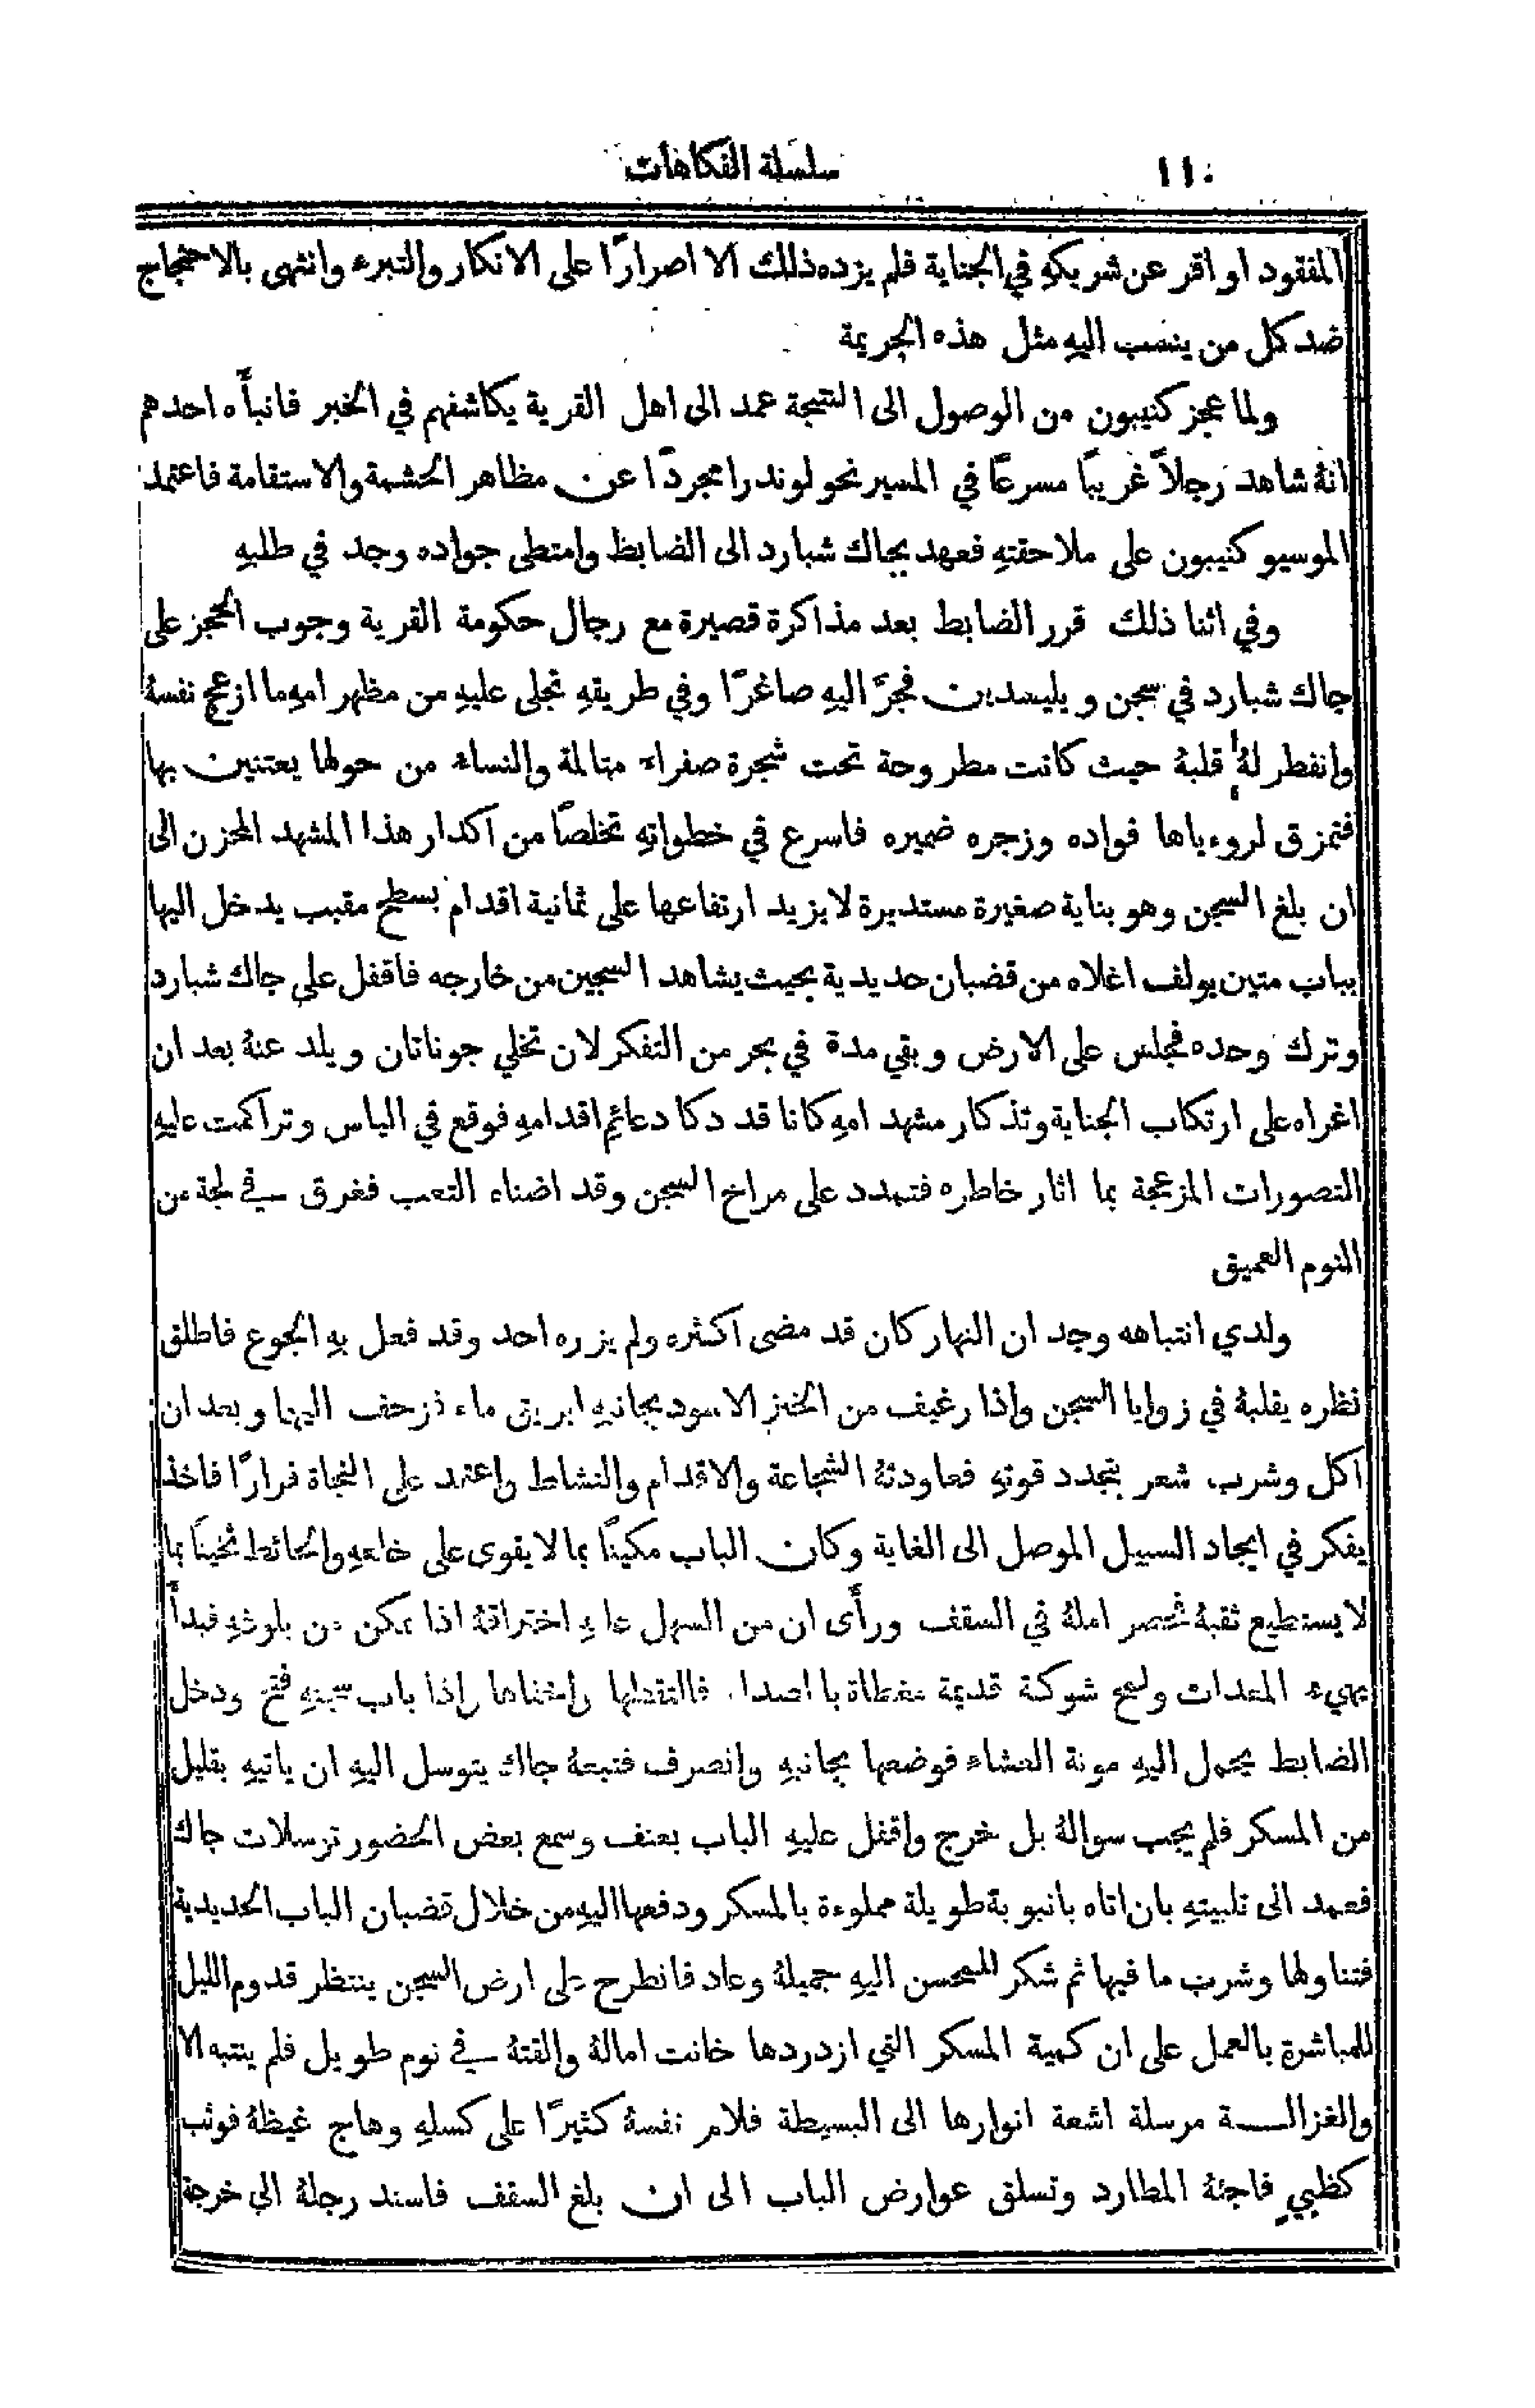 ١١٠
سلسلة الفكاهات
المفقود او اقر عن شريكهِ في الجناية فلم يزده ذلك الا اصرارًا على الانكار والتبرء وانتهى بالاحتجاج
ضد كل من ينسب اليهِ مثل هذه الجريمة
ولما عجز كنيبون من الوصول الى النتيجة عمد الى اهل القرية يكاشفهم في الخبر فانبأه احدهم
انهُ شاهد رجلاً غريبًا مسرعًا في المسير نحو لوندرا مجردًا عن مظاهر الحشمة والاستقامة فاعتمد
الموسيو كنيبون على ملاحقتهِ فعهد بجاك شبارد الى الضابط وامتطى جواده وجد في طلبهِ
وفي اثنا ذلك قرر الضابط بعد مذاكرة قصيرة مع رجال حكومة القرية وجوب الحجز على
جاك شبارد في سجن ويليسدين فجرَّ اليهِ صاغرًا وفي طريقهِ تجلى عليهِ من مظهر امهِ ما ازعج نفسهُ
وانفطر لهُ قلبهُ حيث كانت مطروحة تحت شجرة صفراء متالمة والنساء من حولها يعتنين بها
فتمزق لروءياها فواده وزجره ضميره فاسرع في خطواتهِ تخلصًا من اكدار هذا المشهد المحزن الى
ان بلغ السجن وهو بناية صغيرة مستديرة لا يزيد ارتفاعها على ثمانية اقدام بسطح مقبب يدخل اليها
بباب متين يولف اعلاه من قضبان حديدية بحيث يشاهد السجين من خارجه فاقفل على جاك شبارد
وترك وحده فجلس على الارض وبقي مدة في بحر من التفكر لان تخلي جوناتان ويلد عنهُ بعد ان
اغراه على ارتكاب الجناية وتذكار مشهد امهِ كانا قد دكا دعائم اقدامهِ فوقع في الياس وتراكمت عليهِ
التصورات المزعجة بما اثار خاطره فتمدد على مراخ السجن وقد اضناه التعب فغرق في لجة من
النوم العميق
ولدي انتباهه وجد ان النهار كان قد مضى اكثره ولم يزره احد وقد فعل بهِ الجوع فاطلق
نظره يقلبهُ في زوايا السجن واذا رغيف من الخبز الاسود بجانبهِ ابريق ماء فزحف اليها وبعد ان
اكل وشرب شعر بتجدد قوتهِ فعاودتهُ الشجاعة والاقدام والنشاط واعتمد على النجاة فرارًا فاخذ
يفكر في ايجاد السبيل الموصل الى الغاية وكان الباب مكينًا بما لا يقوى على خلعهِ والحائط ثخينًا بما
لا يستطيع ثقبهُ فحصر املهُ في السقف ورأى ان من السهل عليهِ اختراقهُ اذا تمكن من بلوغهِ فبدأ
يهيء المعدات ولمح شوكة قديمة مغطاة بالصداء فالتقطها واخفاها واذا باب سجنهِ فتح ودخل
الضابط يحمل اليهِ مونة العشاء فوضعها بجانبهِ وانصرف فتبعهُ جاك يتوسل اليهِ ان ياتيهِ بقليل
من المسكر فلم يجب سوالهُ بل خرج واقفل عليهِ الباب بعنف وسمع بعض الحضور توسلات جاك
فعمد الى تلبيتهِ بان اتاه بانبوبة طويلة مملوءة بالمسكر ودفعها اليهِ من خلال قضبان الباب الحديدية
فتناولها وشرب ما فيها ثم شكر للمحسن اليهِ جميلهُ وعاد فانطرح على ارض السجن ينتظر قدوم الليل
للمباشرة بالعمل على ان كمية المسكر التي ازدردها خانت امالهُ والقتهُ في نوم طويل فلم ينتبه الا
والغزالـــة مرسلة اشعة انوارها الى البسيطة فلام نفسهُ كثيرًا على كسلهِ وهاج غيظهُ فوثب
كظبيٍ فاجئهُ المطارد وتسلق عوارض الباب الى ان بلغ السقف فاسند رجلهُ الى خرجة